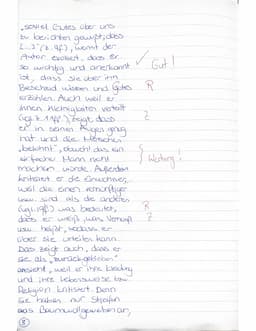 „soviel Gutes über uns
zu berichten gewusst, dass
[...]" (z. 9f.), womit der
Autor erklärt, dass er
so wichtig und anerkannt ✓ Gut!
ist, dass sie über ihn
Bescheid wissen und Gutes R
erzählen. Auch weil er
ihnen Kleinigkeiten verteilt
(vgl. z. 1 ff.), zeigt, dass Z
er in seinen Augen genug
hat und die Menschen
„belohnt", obwohl das ein
einfacher Mann nicht Wertung!
machen würde. Außerdem
kritisiert er die Einwohner,
weil die einen vernünftiger
usw. sind als die anderen
(vgl. ), was bedeutet, R
dass er weiß, was Vernunft Z
usw. heißt, sodass er
über sie urteilen kann.
Das zeigt auch, dass er
sie als „zurückgeblieben"
ansieht, weil er ihre Kleidung
und ihre Lebensweise bzw.
Religion kritisiert. Denn
sie haben nur Streifen
aus Baumwollgeweben an,
8